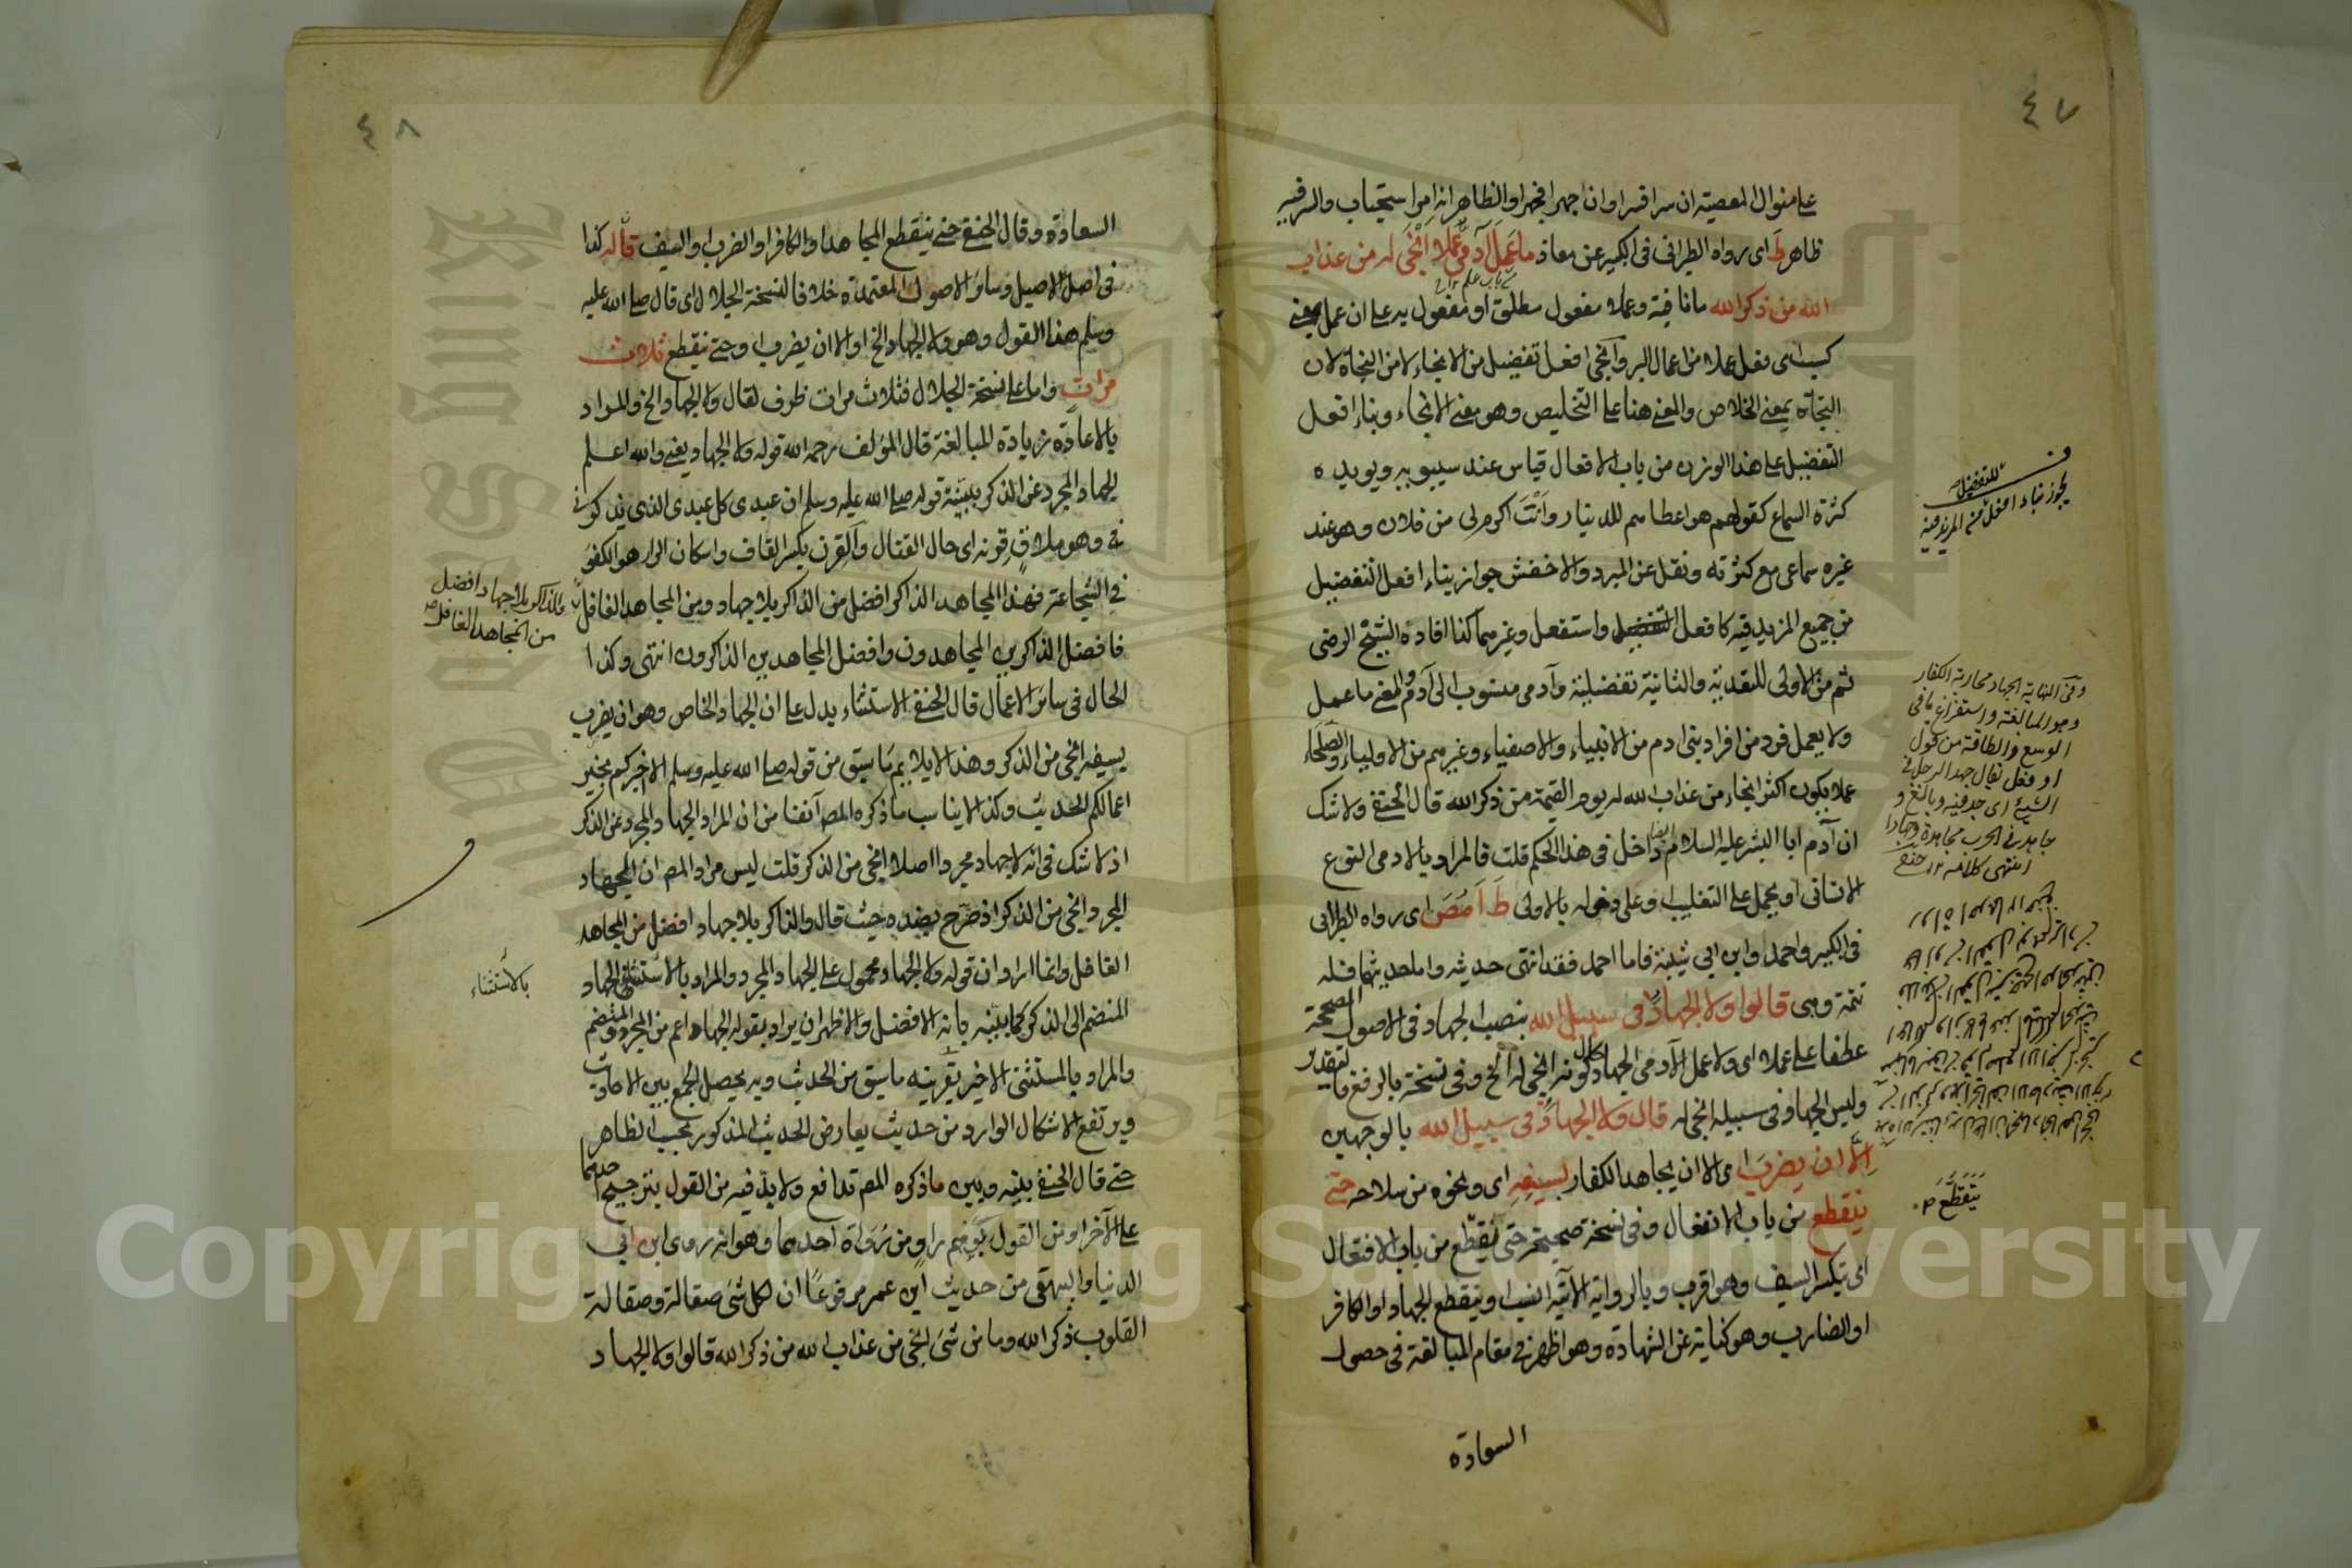 ٤٧
على منوال المعصية ان سرا فسرا وان جهرا فجهرا والظاهر انه امر استحباب والسر فيه
ظاهر ط اى رواه الطبرانى فى الكبير عن معاذ ما عمل آدمى عملا انجى له من عذاب
الله من ذكر الله ما نافية وعملا مفعول مطلق او مفعول به على ان عمل بمعنى
كسب اى فعل عملا من اعمال البر وانجى افعل تفضيل من الانجاء لا من النجاة لان
النجاة بمعنى الخلاص والمعنى هنا على التخليص وهو معنى الانجاء وبناء افعل
التفضيل على هذا الوزن من باب الافعال قياس عند سيبويه ويويده
كثرة السماع كقولهم هو اعطاهم للدينار وانت اكرم لى من فلان وهو عند
غيره سماعى مع كثرته ونقل عن المبرد والاخفش جواز بناء افعل التفضيل
من جميع المزيد فيه كافعل واستفعل وغيرهما كذا افاده الشيخ الرضى
ثم من الاولى للتعدية والثانية تفضيلية وآدمى منسوب الى آدم والمعنى ما عمل
ولا يعمل فرد من افراد بنى ادم من الانبياء والاصفياء وغيرهم من الاولياء والصلحاء
عملا يكون اكثر انجاء من عذاب الله له يوم القيمة من ذكر الله قال الحنفى ولا شك
ان آدم ابا البشر عليه السلام ايضا داخل فى هذا الحكم قلت فالمراد بالادمى النوع
الانسانى او يحمل على التغليب وعلى دخوله بالاولى ط ا مص اى رواه الطبرانى
فى الكبير واحمد وابن ابى شيبة فاما احمد فقد انتهى حديثه واما لحديثهما فله
تتمة وهى قالوا ولا الجهاد فى سبيل الله بنصب الجهاد فى الاصول الصحيحة
عطفا على عملا اى ولا عمل الآدمى الجهاد حال كونه انجى له الخ وفى نسخة بالرفع فالتقدير
وليس الجهاد فى سبيله انجى له قال ولا الجهاد فى سبيل الله بالوجهين
الا ان يضرب اى الا ان يجاهد الكفار بسيفه اى ونحوه من سلاحه حتى
ينقطع من باب الانفعال وفى نسخة صحيحة حتى يتقطع من باب الافتعال
اى تكسر السيف وهو اقرب وبالرواية الآتية انسب او ينقطع الجهاد او الكافر
او الضارب وهو كناية عن الشهادة وهو اظهر فى مقام المبالغة فى حصول
السعادة
للتفضيل
يجوز بناء افعل من المزيد فيه
وفى النهاية الجهاد محاربة الكفار
وهو المبالغة واستفراغ ما فى
الوسع والطاقة من قول
او فعل يقال جهد الرجل فى
الشيئ اى جد فيه وبالغ و
جاهد فى الحرب مجاهدة وجهادا
انتهى كلامه ١٢ حنفى
يتقطع
٤٨
السعادة وقال الحنفى حتى ينقطع المجاهد او الكافر او الضرب او السيف قاله كذا
فى اصل الاصيل وسائر الاصول المعتمدة خلافا لنسخة الجلال اى قال صلى الله عليه
وسلم هذا القول وهو ولا الجهاد الخ او الا ان يضرب او حتى ينقطع ثلاث
مرات واما على نسخة الجلال فثلاث مرات ظرف لقال ولا الجهاد الخ والمراد
بالاعادة زيادة المبالغة قال المؤلف رحمه الله قوله ولا الجهاد يعنى والله اعلم
الجهاد المجرد عن الذكر يبينه قوله صلى الله عليه وسلم ان عبدى كل عبدى الذى يذكرنى
وهو ملاق قرنه اى حال القتال والقرن بكسر القاف واسكان الراء هو الكفو
فى الشجاعة فهذا المجاهد الذاكر افضل من الذاكر بلا جهاد ومن المجاهد الغافل
فافضل الذاكرين المجاهدون وافضل المجاهدين الذاكرون انتهى وكذا
الحال فى سائر الاعمال قال الحنفى الاستثناء يدل على ان الجهاد الخاص وهو ان يضرب
بسيفه انجى من الذكر وهذا لا يلايم ما سبق من قوله صلى الله عليه وسلم الا اخبركم بخير
اعمالكم الحديث وكذا لا يناسب ما ذكره المص آنفا من ان المراد الجهاد المجرد عن الذكر
اذ لا شك فى انه لا جهاد مجردا اصلا انجى من الذكر قلت ليس مراد المص ان الجهاد
المجرد انجى من الذكر اذ صرح بضده حيث قال والذاكر بلا جهاد افضل من المجاهد
الغافل وانما اراد ان قوله ولا الجهاد محمول على الجهاد المجرد والمراد بالاستثناء الجهاد
المنضم الى الذكر كما يبينه بانه الافضل والاظهر ان يراد بقوله الجهاد اعم من المجرد والمنضم
والمراد بالمستثنى الاخير بقرينة ما سبق من الحديث وبه يحصل الجمع بين الاحاديث
ويرتفع الاشكال الوارد من حديث يعارض الحديث المذكور بحسب الظاهر
حتى قال الحنفى بينه وبين ما ذكره المص تدافع ولا بد فيه من القول بترجيح احدهما
على الآخر او من القول بوهم راو من رواة احدهما وهو انه روى ابن ابى
الدنيا والبيهقى من حديث ابن عمر مرفوعا ان لكل شئ صقالة وصقالة
القلوب ذكر الله وما من شئ انجى من عذاب الله من ذكر الله قالوا ولا الجهاد
والذاكر بلا جهاد افضل
من المجاهد الغافل
بالاستثناء
Copyright © King Saud University
King Saud University
1957